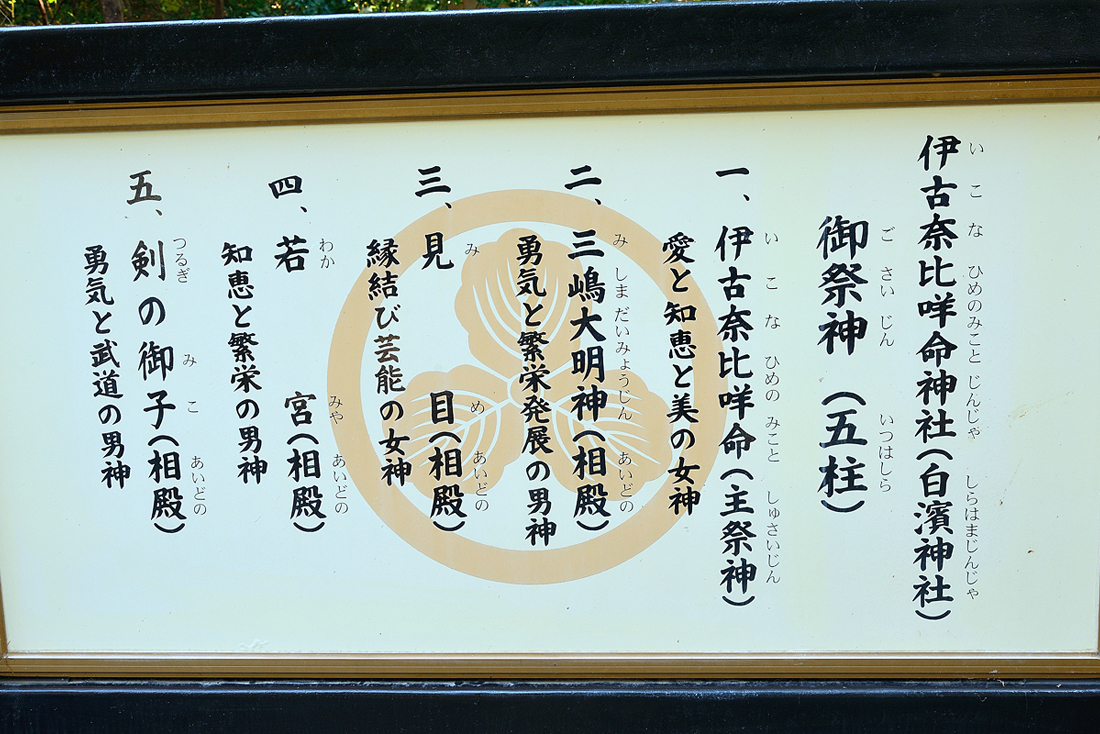 伊古奈比咩命神社(白濱神社)
いこなひめのみことじんじゃ しらはまじんじゃ
御祭神(五柱)
ごさいじん いつはしら
一、伊古奈比咩命(主祭神)
いこなひめのみこと しゅさいじん
愛と知恵と美の女神
二、三嶋大明神(相殿)
みしまだいみょうじん あいどの
勇気と繁栄発展の男神
三、見目(相殿)
みめ あいどの
縁結び芸能の女神
四、若宮(相殿)
わかみや あいどの
知恵と繁栄の男神
五、剣の御子(相殿)
つるぎ みこ あいどの
勇気と武道の男神